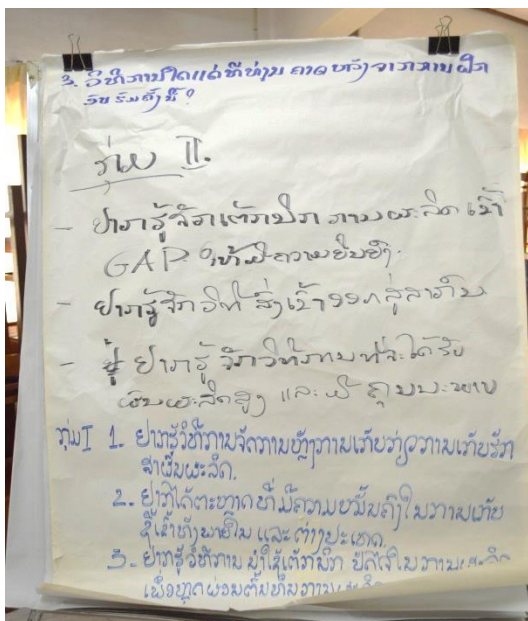 3. ວິທີການໃດແດ່ທີ່ທ່ານ ຄາດຫວັງຈາກການຝຶກ
ອົບຮົມຄັ້ງນີ້?
II.
- ຢາກຮູ້ຈັກເຕັກນິກ ການຜະລິດ ເຂົ້າ
GAP ໃຫ້ມີຄວາມຍືນຍົງ.
- ຢາກຮູ້ຈັກ ວິທີ ສົ່ງເຂົ້າອອກສູ່
- ຢາກຮູ້ ຈັກວິທີການ ທີ່ຈະໄດ້ຮັບ
ຜົນຜະລິດສູງ ແລະ ມີ ຄຸນນະພາບ
ກຸ່ມI 1. ຢາກຮູ້ວິທີການຈັດການຫຼັງການເກັບກ່ຽວການເກັບຮັກ
ສາຜົນຜະລິດ.
2. ຢາກໄດ້ຕະຫຼາດທີ່ມີຄວາມໝັ້ນຄົງໃນການເກັບ
ຊື້ເຂົ້າທັງພາຍໃນ ແລະ ຕ່າງປະເທດ.
3. ຢາກຮູ້ວິທີການ ນຳໃຊ້ເຕັກນິກ ປັດໄຈໃນການຜະລິດ
ເພື່ອຫຼຸດຜ່ອນຕົ້ນທຶນການຜະລິດ